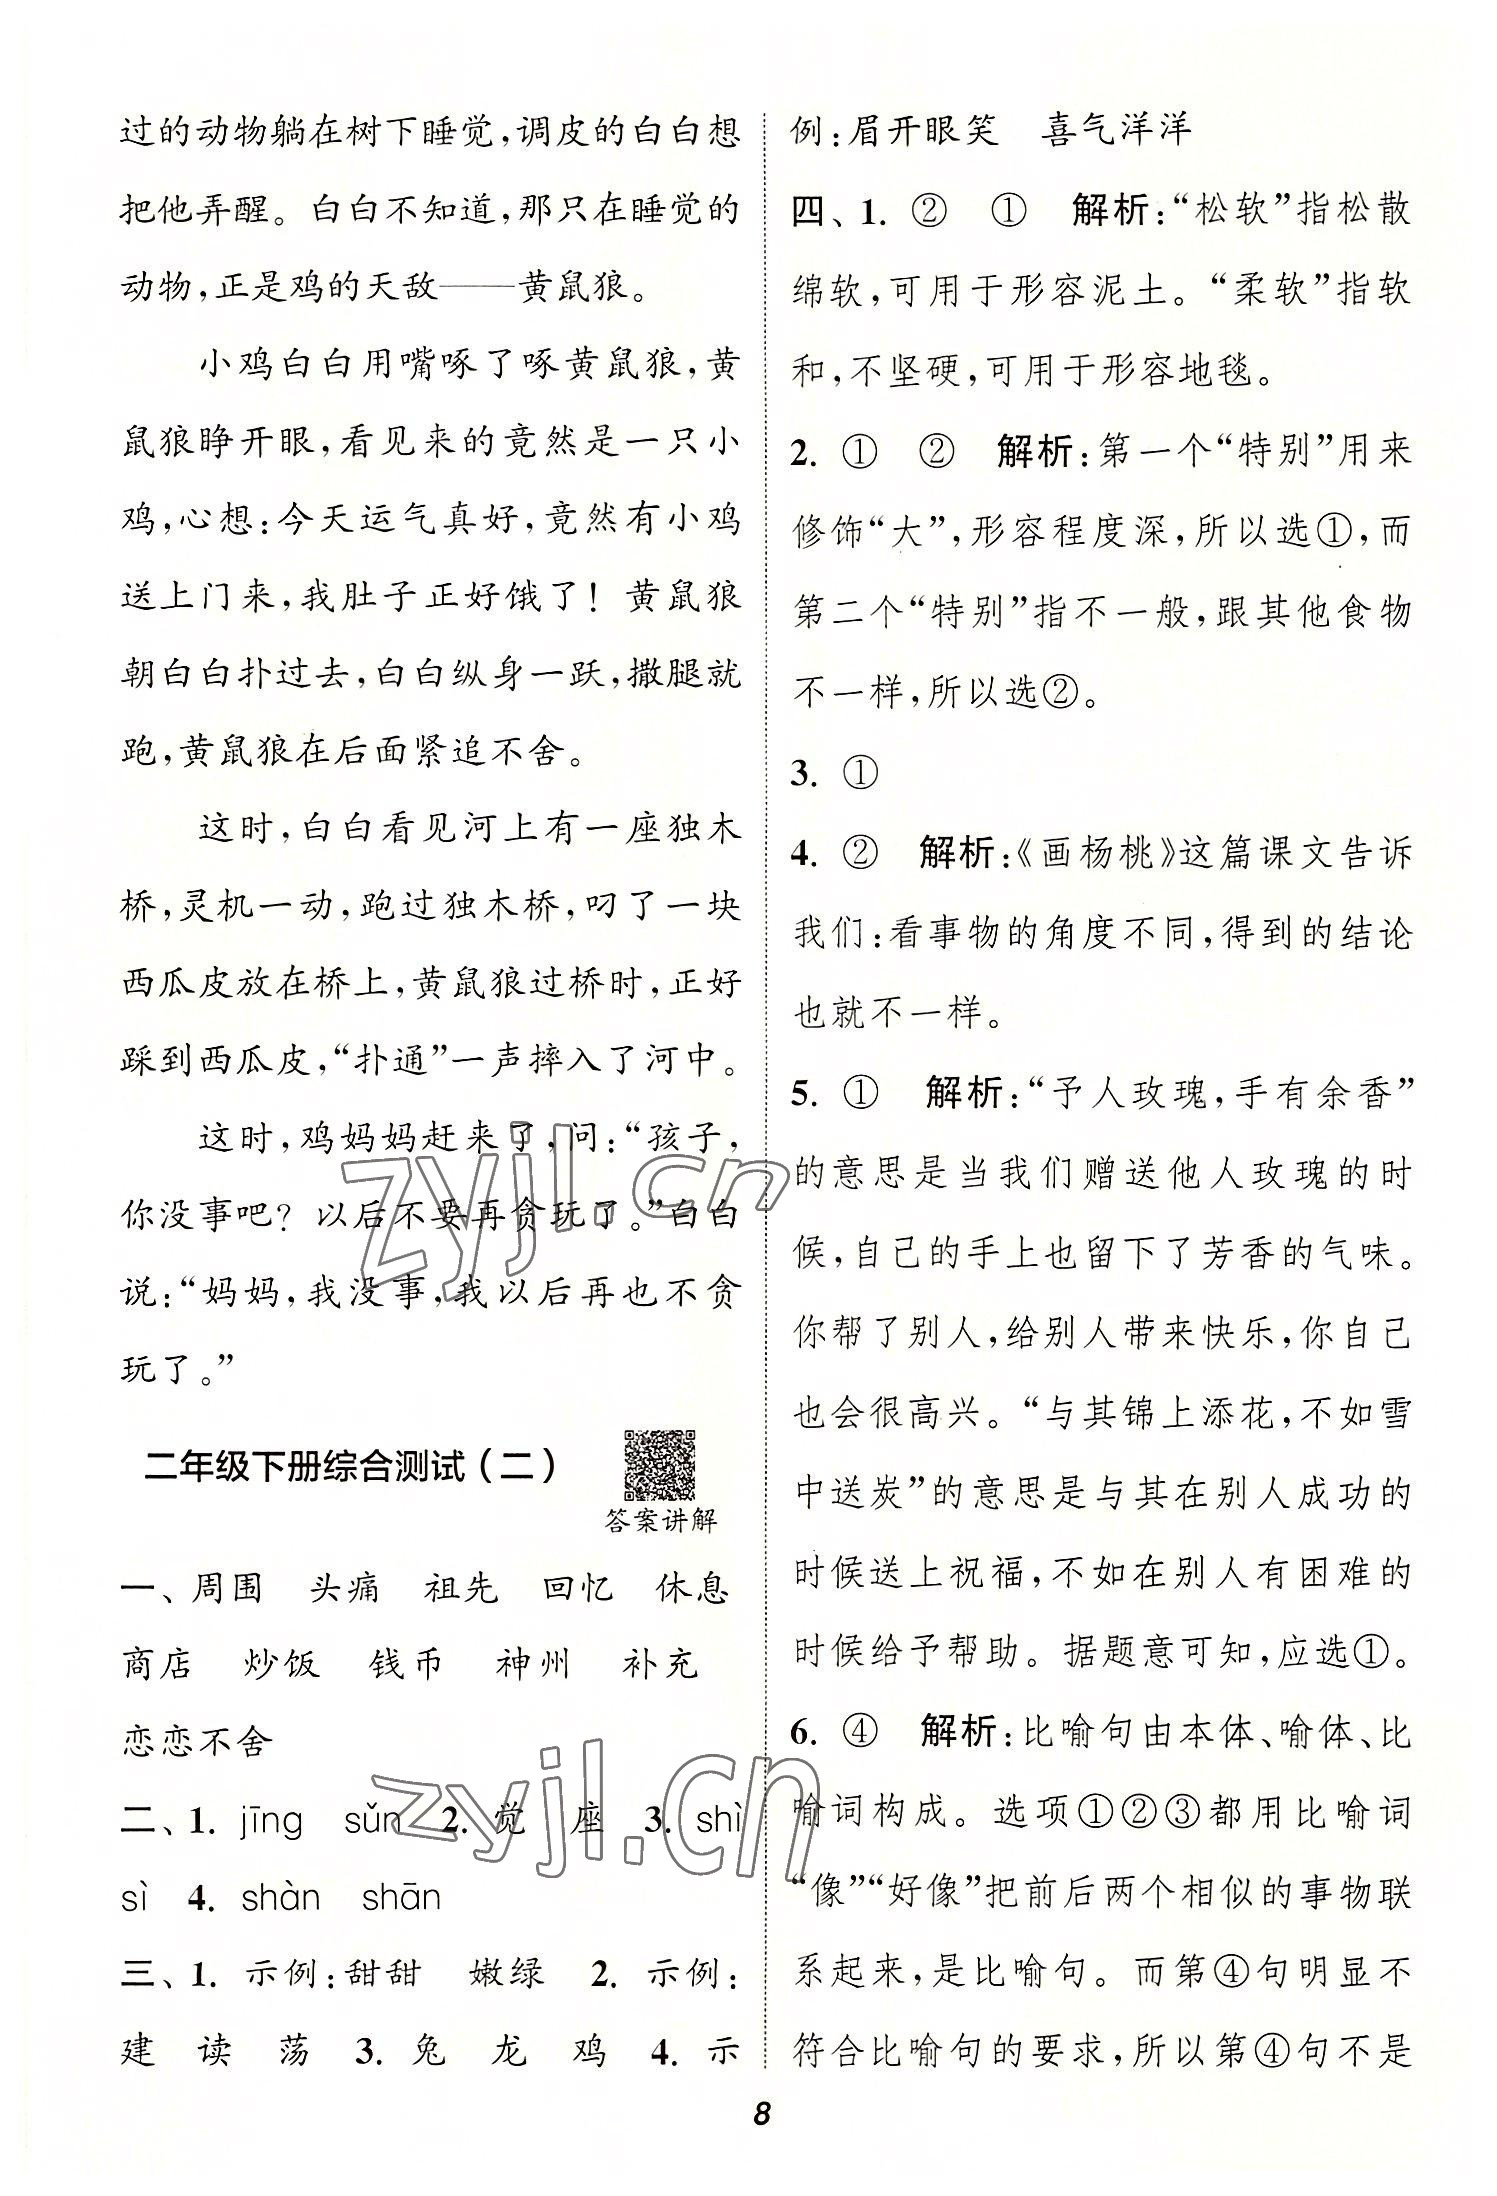 过的动物躺在树下睡觉，调皮的白白想
把他弄醒。白白不知道，那只在睡觉的
动物，正是鸡的天敌——黄鼠狼。
小鸡白白用嘴啄了啄黄鼠狼，黄
鼠狼睁开眼，看见来的竟然是一只小
鸡，心想：今天运气真好，竟然有小鸡
送上门来，我肚子正好饿了！黄鼠狼
朝白白扑过去，白白纵身一跃，撒腿就
跑，黄鼠狼在后面紧追不舍。
这时，白白看见河上有一座独木
桥，灵机一动，跑过独木桥，叼了一块
西瓜皮放在桥上，黄鼠狼过桥时，正好
踩到西瓜皮，“扑通”一声摔入了河中。
这时，鸡妈妈赶来了，问：“孩子，
你没事吧？以后不要再贪玩了。”白白
说：“妈妈，我没事，我以后再也不贪
玩了。”
二年级下册综合测试（二）
答案讲解
一、周围　头痛　祖先　回忆　休息
商店　炒饭　钱币　神州　补充
恋恋不舍
二、1. jīng　sǔn　2. 觉　座　3. shì
sì　4. shàn　shān
三、1. 示例：甜甜　嫩绿　2. 示例：
建　读　荡　3. 兔　龙　鸡　4. 示
例：眉开眼笑　喜气洋洋
四、1. ②　①　解析：“松软”指松散
绵软，可用于形容泥土。“柔软”指软
和，不坚硬，可用于形容地毯。
2. ①　②　解析：第一个“特别”用来
修饰“大”，形容程度深，所以选①，而
第二个“特别”指不一般，跟其他食物
不一样，所以选②。
3. ①
4. ②　解析：《画杨桃》这篇课文告诉
我们：看事物的角度不同，得到的结论
也就不一样。
5. ①　解析：“予人玫瑰，手有余香”
的意思是当我们赠送他人玫瑰的时
候，自己的手上也留下了芳香的气味。
你帮了别人，给别人带来快乐，你自己
也会很高兴。“与其锦上添花，不如雪
中送炭”的意思是与其在别人成功的
时候送上祝福，不如在别人有困难的
时候给予帮助。据题意可知，应选①。
6. ④　解析：比喻句由本体、喻体、比
喻词构成。选项①②③都用比喻词
“像”“好像”把前后两个相似的事物联
系起来，是比喻句。而第④句明显不
符合比喻句的要求，所以第④句不是
8
zyjl.cn
zyjl.cn